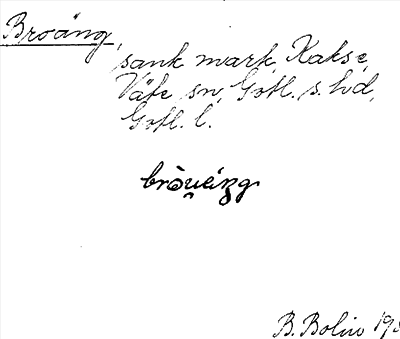 Broäng,
sank mark, Kakse,
Väte sn, Gotl. s. hd,
Gotl. l.
B. Bolin 19